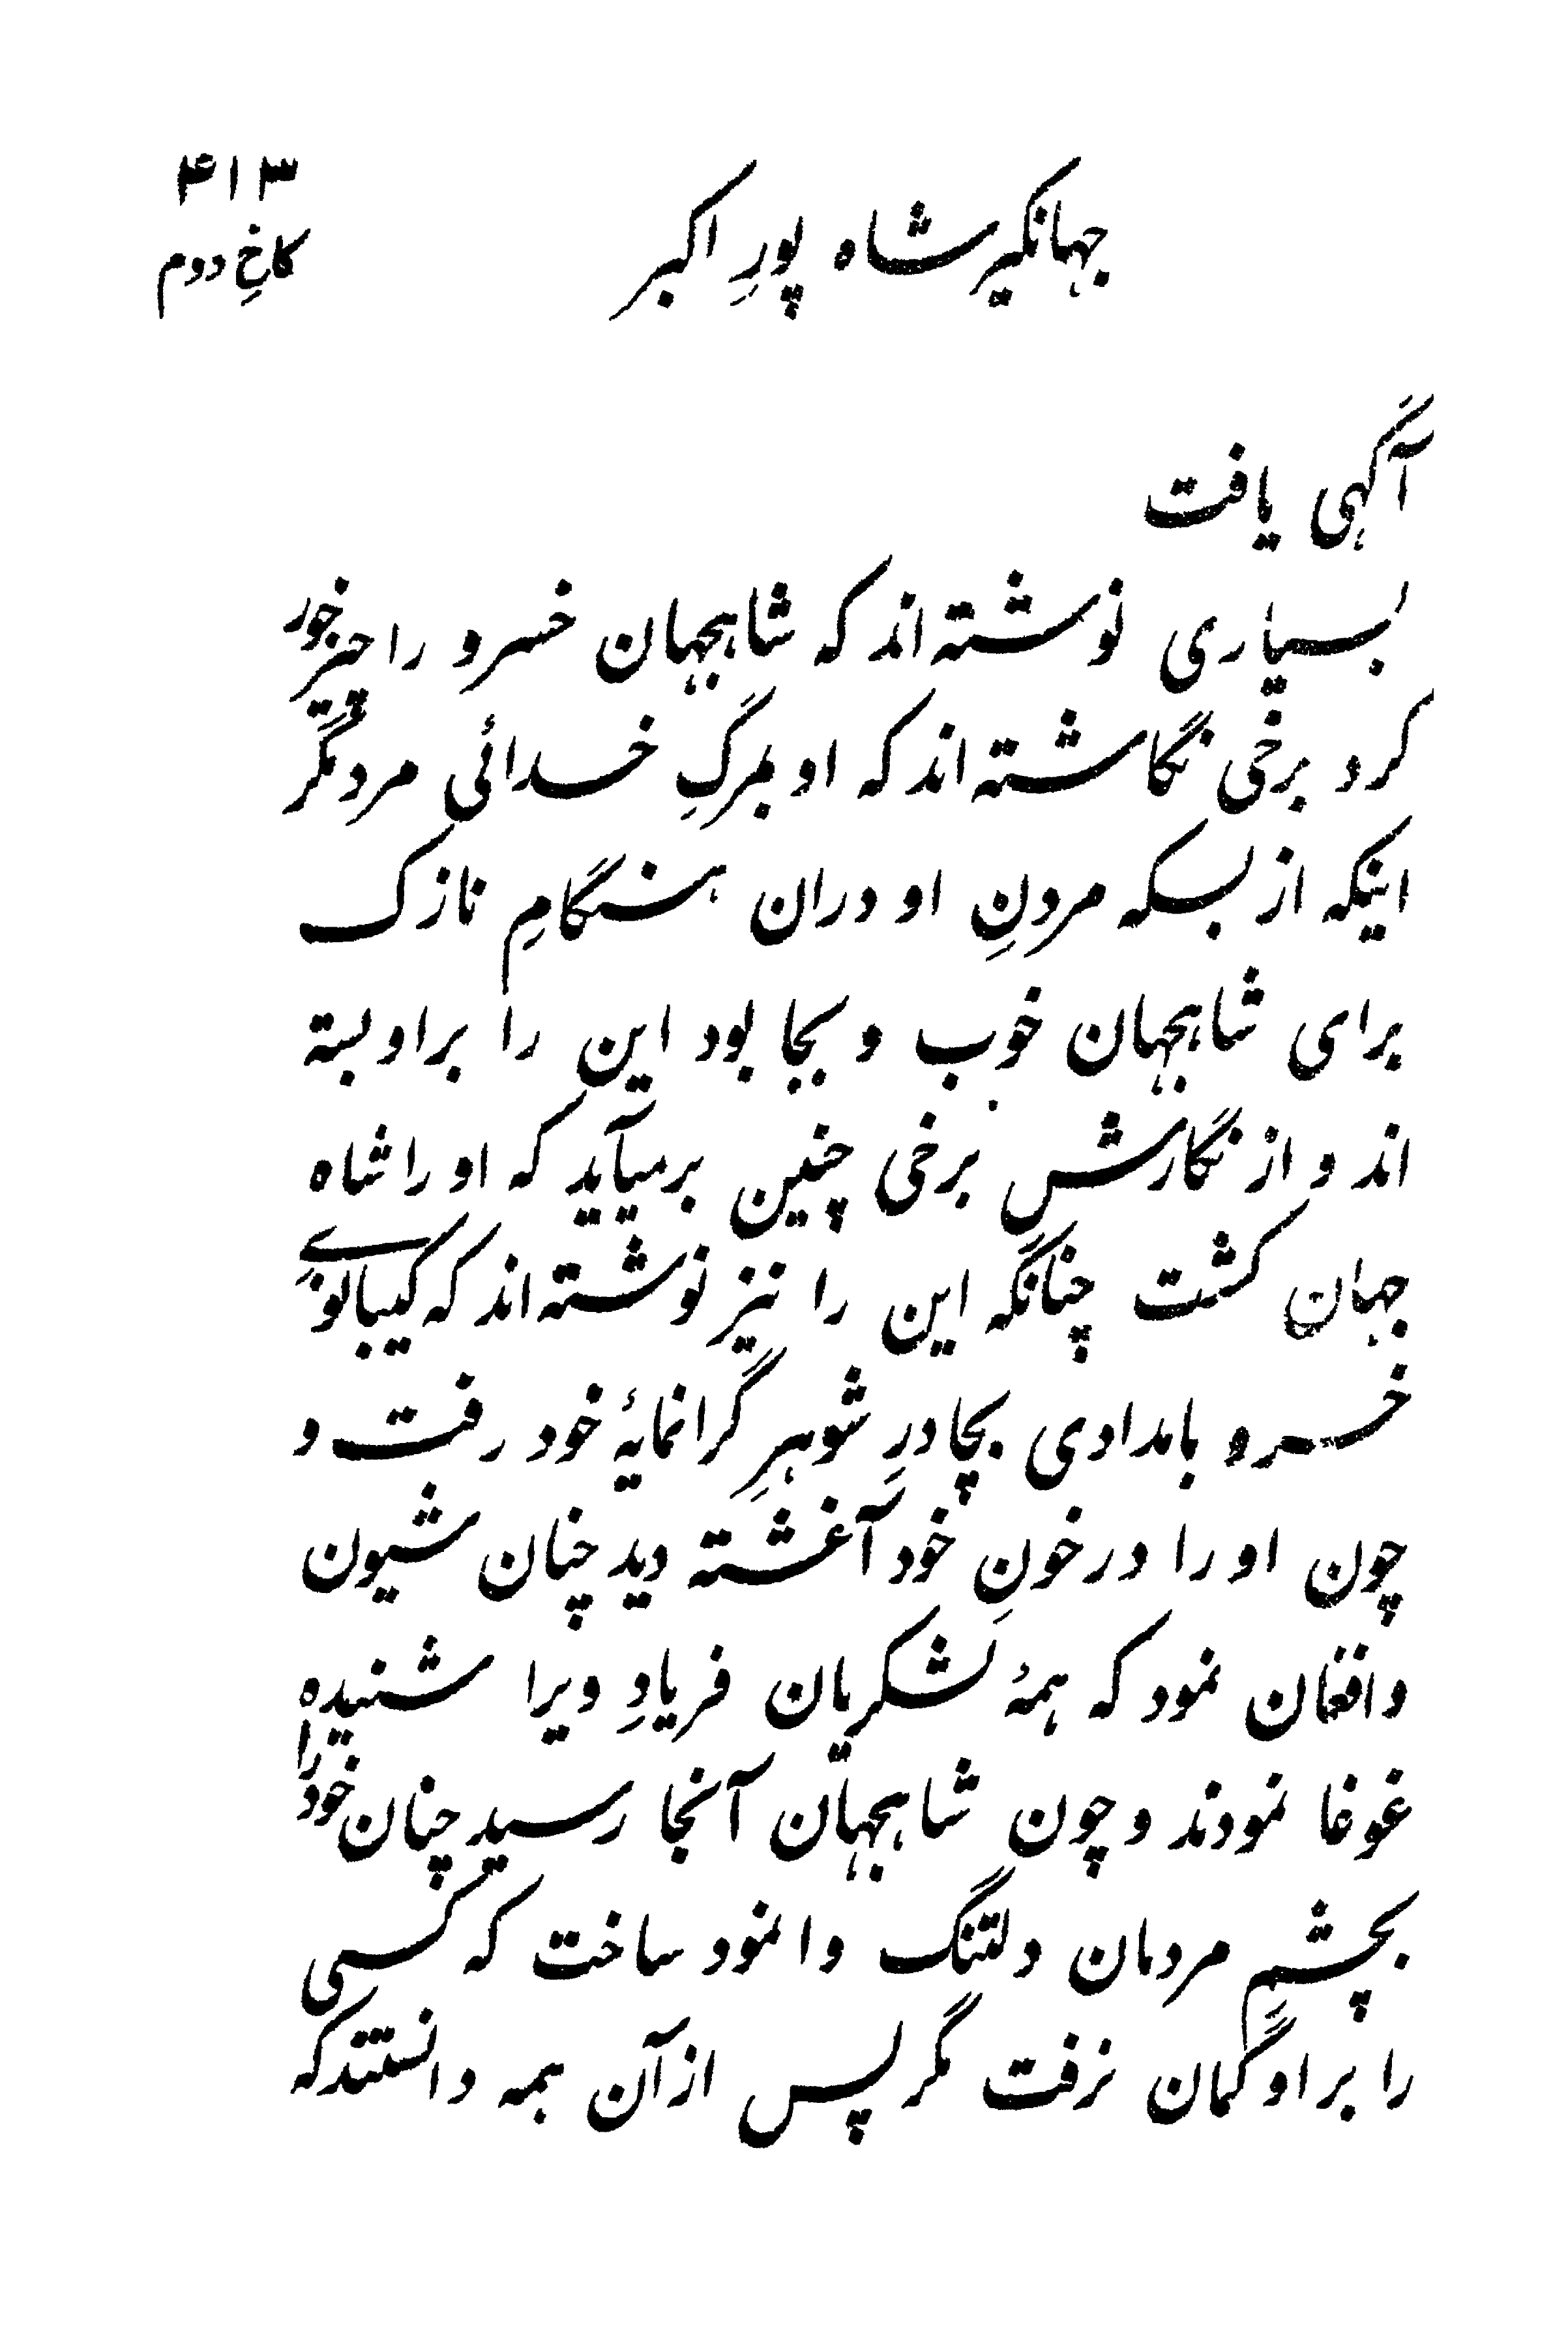 ۴۱۳
جهانگیرشاه پورِ اکبر
کاخِ دوم
آگهی یافت
بسیاری نوشته‌اند که شاهجهان خسرو را چیز خور
کرد برخی نگاشته‌اند که او بمرگِ خدائی مرد مگر
اینکه از بسکه مردنِ او دران هنگامِ نازک
برای شاهجهان خوب و بجا بود این را بر او بسته
اند و از نگارشِ برخی چنین برمیآید که او را شاه
جهان کشت چنانگه این را نیز نوشته‌اند که کیبانوے
خسرو بامدادی بچادرِ شوهرِ گرانمایهٔ خود رفت و
چون او را در خونِ خود آغشته دید چنان شیون
و افغان نمود که همهٔ لشکریان فریادِ ویرا شنیده
غوغا نمودند و چون شاهجهان آنجا رسید چنان خود را
بچشمِ مردمان دلتنگ وانمود ساخت که کسی
را بر او گمان نرفت مگر پس از آن همه دانستند که